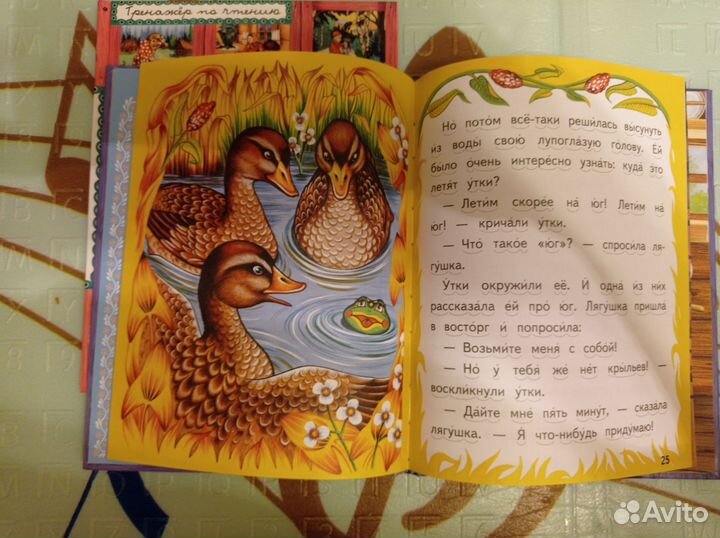 Тренажёр по чтению
Но́ пото́м всё-таки реши́лась вы́сунуть
из воды́ свою́ лупогла́зую го́лову. Ей
бы́ло о́чень интере́сно узна́ть: куда́ это
летя́т у́тки?
— Лети́м скоре́е на́ юг! Лети́м на́
юг! — крича́ли у́тки.
— Что́ тако́е «ю́г»? — спроси́ла ля-
гу́шка.
У́тки окружи́ли её. И́ одна́ из них
рассказа́ла е́й про́ юг. Лягу́шка пришла́
в восто́рг и́ попроси́ла:
— Возьми́те меня́ с собо́й!
— Но́ у́ тебя́ же не́т кры́льев! —
воскли́кнули у́тки.
— Да́йте мне́ пя́ть мину́т, — сказа́ла
лягу́шка. — Я́ что-нибу́дь приду́маю!
25
Avito